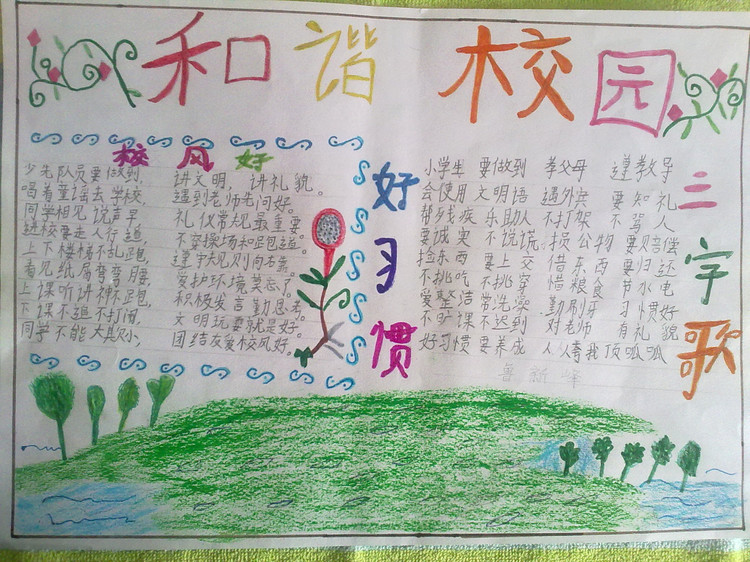 和谐校园
校风好
少先队员要做到, 讲文明, 讲礼貌。
唱着童谣去学校, 遇到老师先问好。
同学相见说声早, 礼仪常规最重要。
进校要走人行道, 不穿操场和跑道。
上下楼梯不乱跑, 遵守规则向右靠。
看见纸屑弯弯腰, 爱护环境莫忘了。
上课听讲神不跑, 积极发言勤思考。
下课不追不打闹, 文明玩耍就是好。
同学不能大欺小, 团结友爱校风好。
好习惯
三字歌
小学生 要做到 孝父母 遵教导
会使用 文明语 遇外宾 要知礼
帮残疾 乐助人 不打架 不骂人
要诚实 不说谎 损公物 要赔偿
捡东西 要上交 借东西 要归还
不挑吃 不挑穿 惜粮食 节水电
爱整洁 常洗澡 勤刷牙 习惯好
不旷课 不迟到 对老师 有礼貌
好习惯 要养成 人人夸我 顶呱呱